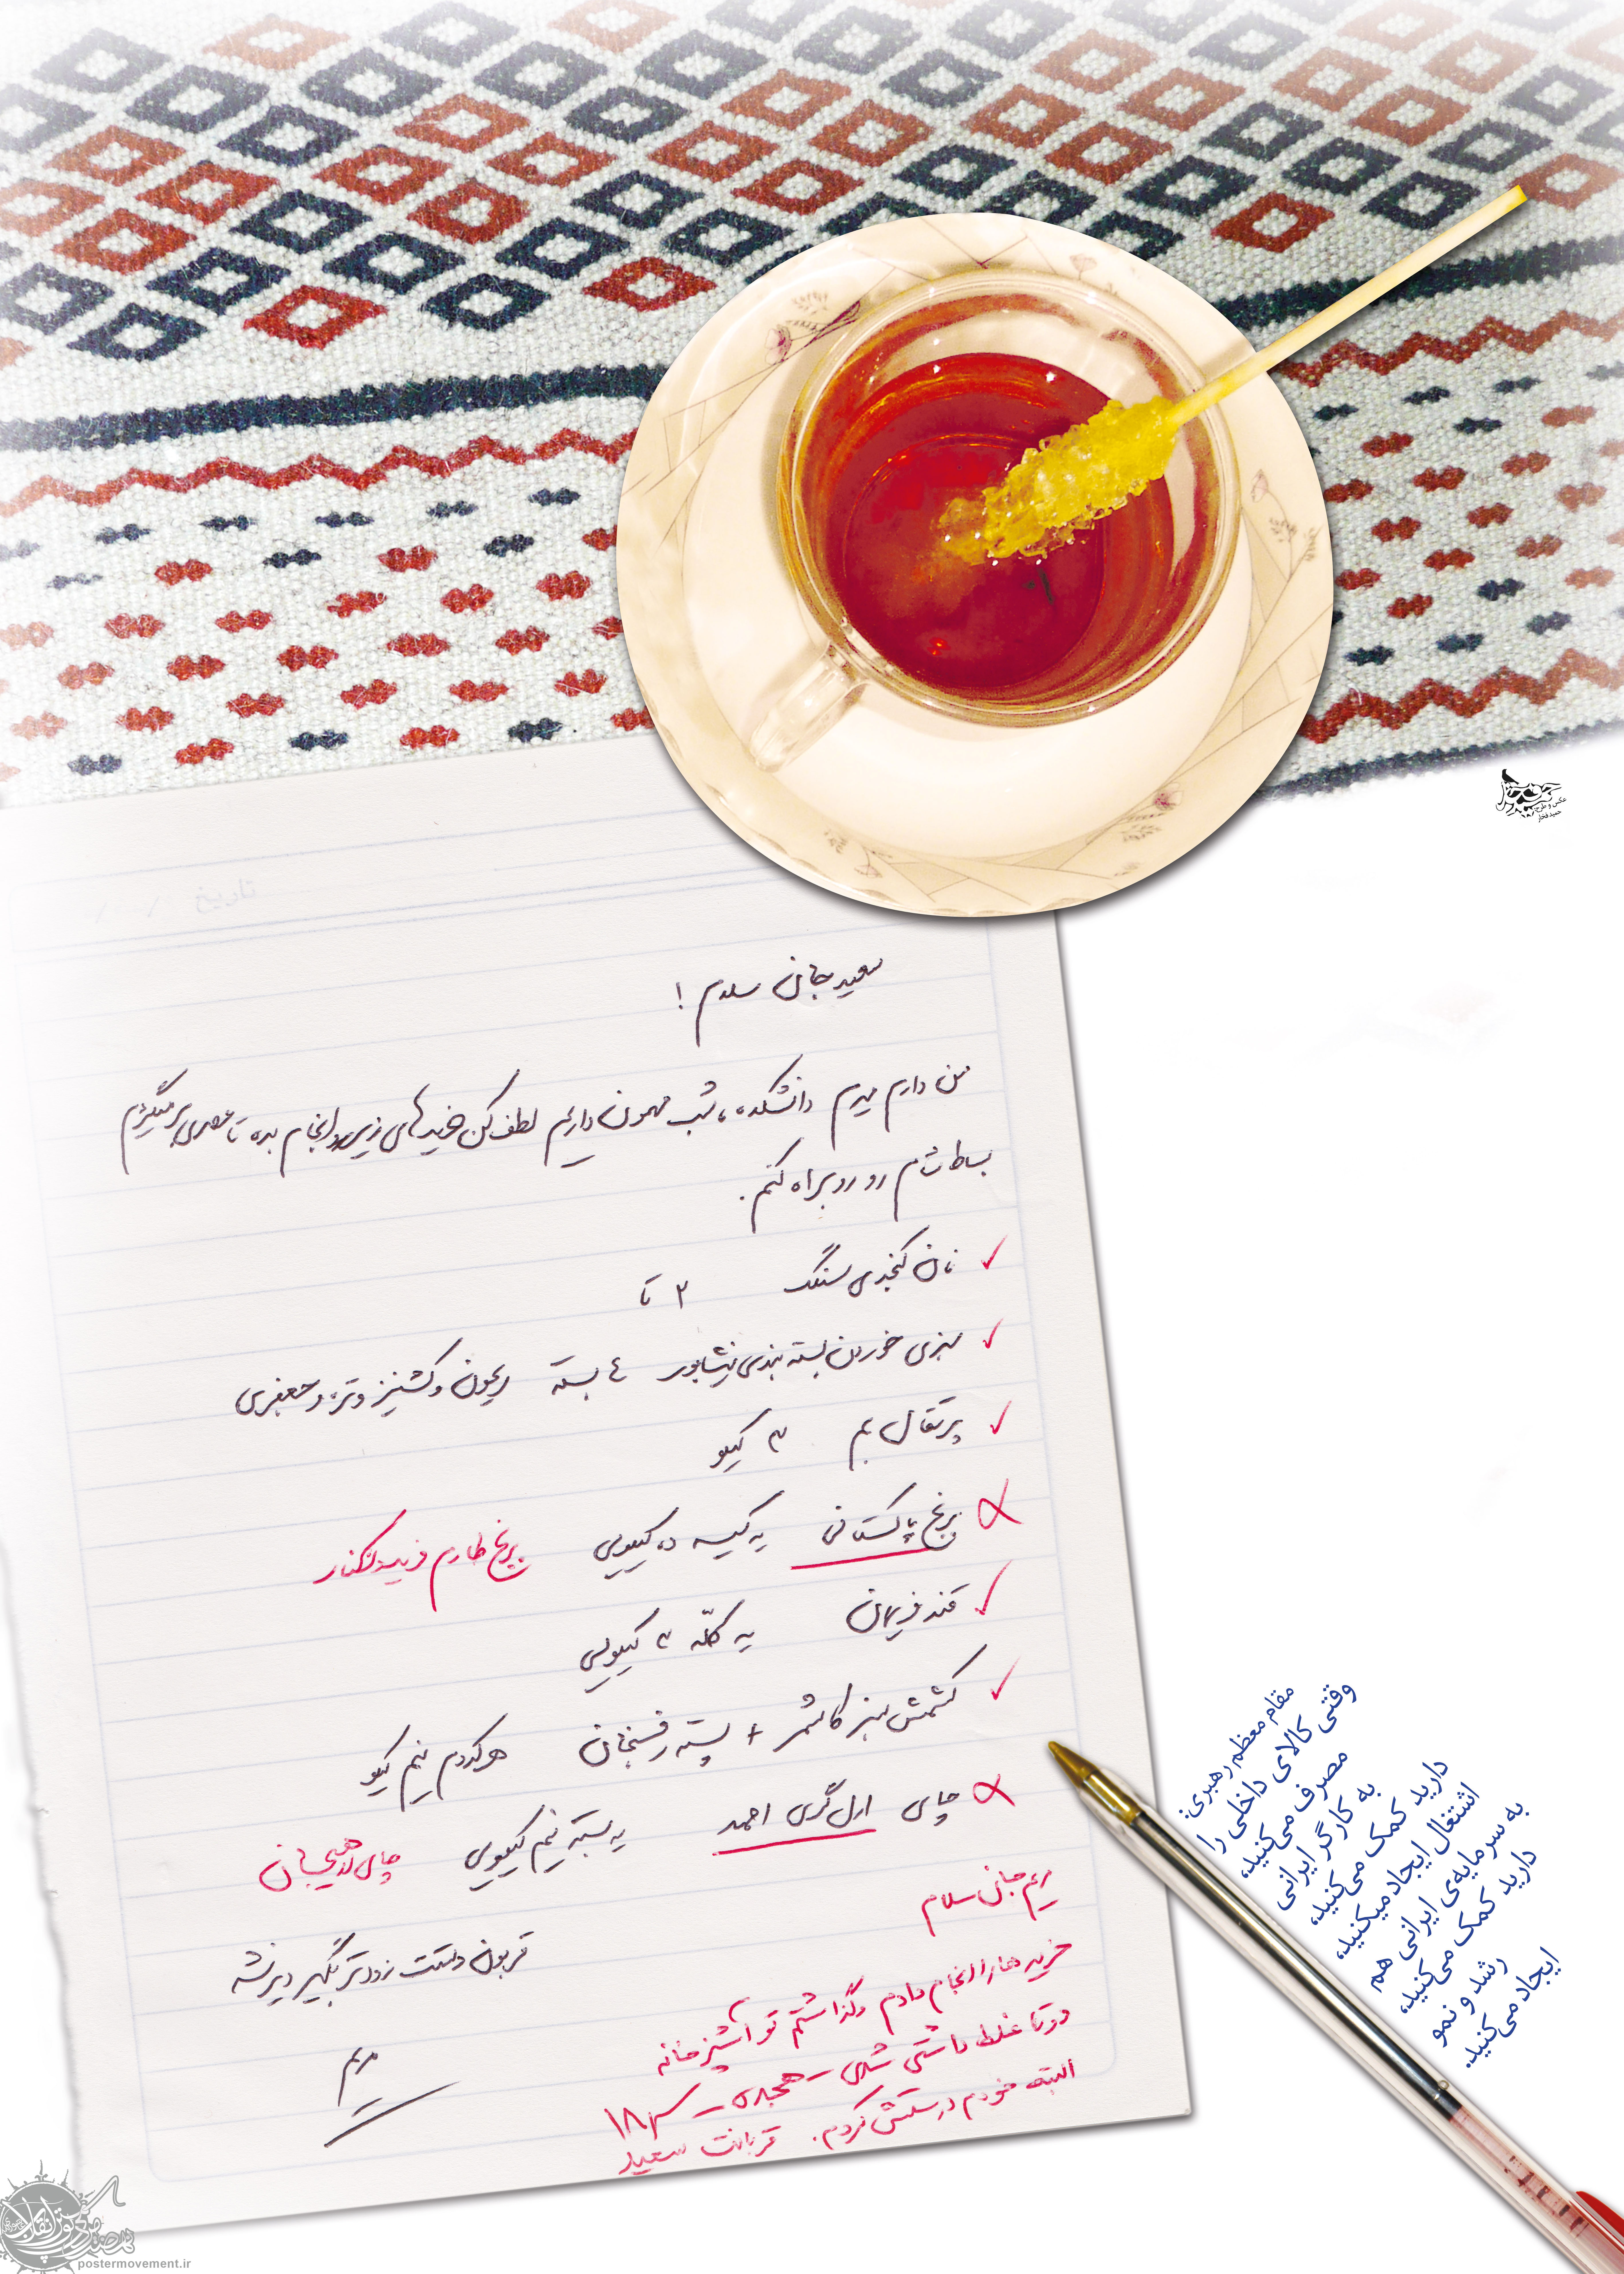 تاریخ / /
سعید جان سلام !
من دارم میرم دانشکده، شب مهمون داریم لطف کن خریدهای زیر رو انجام بده تا عصری برمیگردم
بساط شام رو روبراه کنم.
نان کنجدی سنگک ۲ تا
سبزی خوردن بسته بندی نیشابور ۴ بسته ریحون و گشنیز و تره و جعفری
پرتقال بم ۳ کیلو
برنج پاکستانی یه کیسه ده کیلویی برنج طارم فریدونکنار
قند فریمان یه کلّه ۲ کیلویی
کشمش سبز کاشمر + پسته رفسنجان هرکدوم نیم کیلو
چای ارل گری احمد یه بسته نیم کیلویی چای لاهیجان
قربون دستت زودتر بگیر دیر نشه
مریم
مریم جان سلام
خریدها را انجام دادم و گذاشتم تو آشپزخانه
دوتا غلط داشتی شدی – هجده – ۱۸
البته خودم درستش کردم. قربانت سعید
مقام معظم رهبری:
وقتی کالای داخلی را
مصرف می‌کنید،
به کارگر ایرانی
دارید کمک می‌کنید،
اشتغال ایجاد میکنید،
به سرمایه‌ی ایرانی هم
دارید کمک می‌کنید،
رشد و نمو
ایجاد می‌کنید.
عکس و طرح:
حمید افخار
postermovement.ir